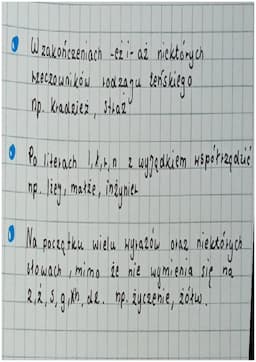 W zakończeniach -eż i -aż niektórych
rzeczowników rodzaju żeńskiego
np. kradzież, straż
Po literach l, ł, r, n z wyjądkiem współrządzić
np. lżej, małże, inżynier
Na początku wielu wyrazów oraz niektórych
słowach, mimo że nie wymienia się na
z, s, g, h, dz. np. życzenie, żółw.